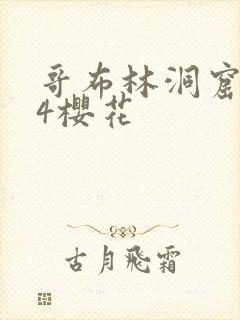 哥布林洞窟
4櫻花
古月飛霜